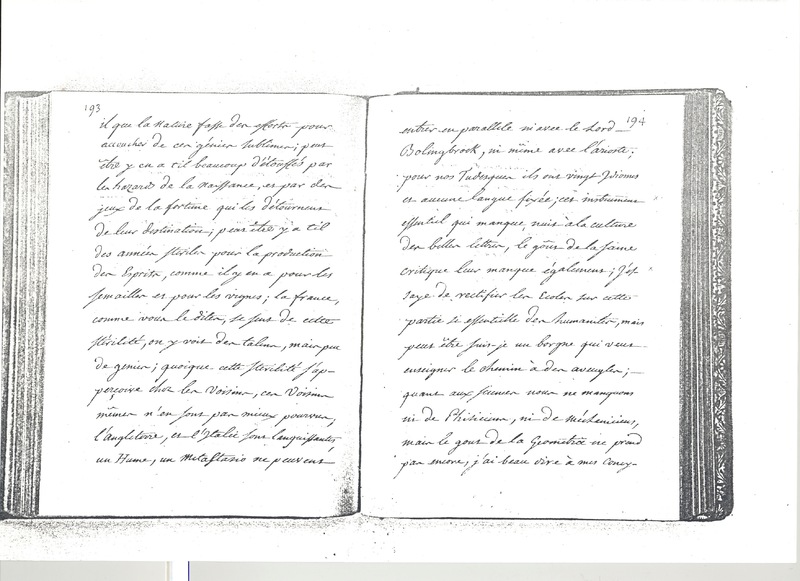 193
il que la Nature fasse des efforts pour
accoucher de ces génies sublimes; peut
être y en a t'il beaucoup d'étouffés par
les hazards de la Naissance, et par des
jeux de la fortune qui les détournent
de leur destination; peut être y a t'il
des années stériles pour la production
des Esprits, comme il y en a pour les
semailles et pour les vignes; la france,
comme vous le dites, se sent de cette
stérilité, on y voit des talens, mais peu
de genies; quoique cette stérilité s'ap-
perçoive chez les Voisins, ces Voisins
mêmes n'en sont pas mieux pourvus;
l'Angleterre, et l'Italie sont languissantes
un Hume, un Metastasio ne peuvent
194
entrer en parallele ni avec le Lord
Bolingbrook, ni même avec l'arioste;
pour nos Tudesques ils ont vingt Idiomes
et aucune langue fixée; cet instrument
essentiel qui manque, nuit à la culture
des belles lettres, le goût de la saine
critique leur manque également; j'es
saye de rectifier les Ecoles sur cette
partie si essentielle des humanités, mais
peut être suis-je un borgne qui veut
enseigner le chemin à des aveugles;
quant aux sciences nous ne manquons
ni de Phisiciens, ni de Méchaniciens,
mais le gout de la Geométrie ne prend
pas encore, j'ai beau dire à mes concy-